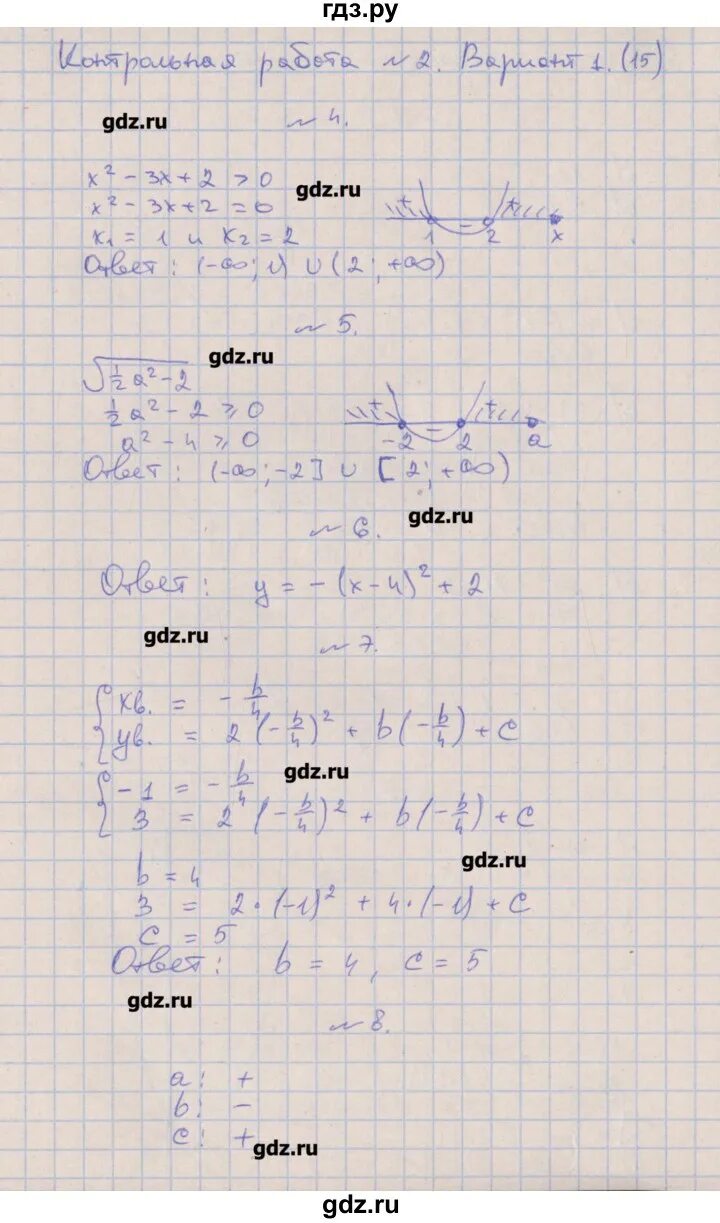 гдз.ру
Контрольная работа №2. Вариант 1. (15)
gdz.ru
№ 4.
x² - 3x + 2 > 0
gdz.ru
x² - 3x + 2 = 0
+ - +
x₁ = 1 и x₂ = 2
1 2 x
Ответ: (-∞; 1) ∪ (2; +∞)
№ 5.
gdz.ru
√(½a² - 2)
½a² - 2 ⩾ 0
+ - +
a² - 4 ⩾ 0
-2 2 a
Ответ: (-∞; -2] ∪ [2; +∞)
gdz.ru
№ 6.
Ответ: y = -(x-4)² + 2
gdz.ru
№ 7.
{ xв. = - b/4
yв. = 2(-b/4)² + b(-b/4) + c
gdz.ru
{ -1 = - b/4
3 = 2(-b/4)² + b(-b/4) + c
gdz.ru
b = 4
3 = 2·(-1)² + 4·(-1) + c
c = 5
Ответ: b = 4, c = 5
gdz.ru
№ 8.
a: +
b: -
c: +
gdz.ru
gdz.ru